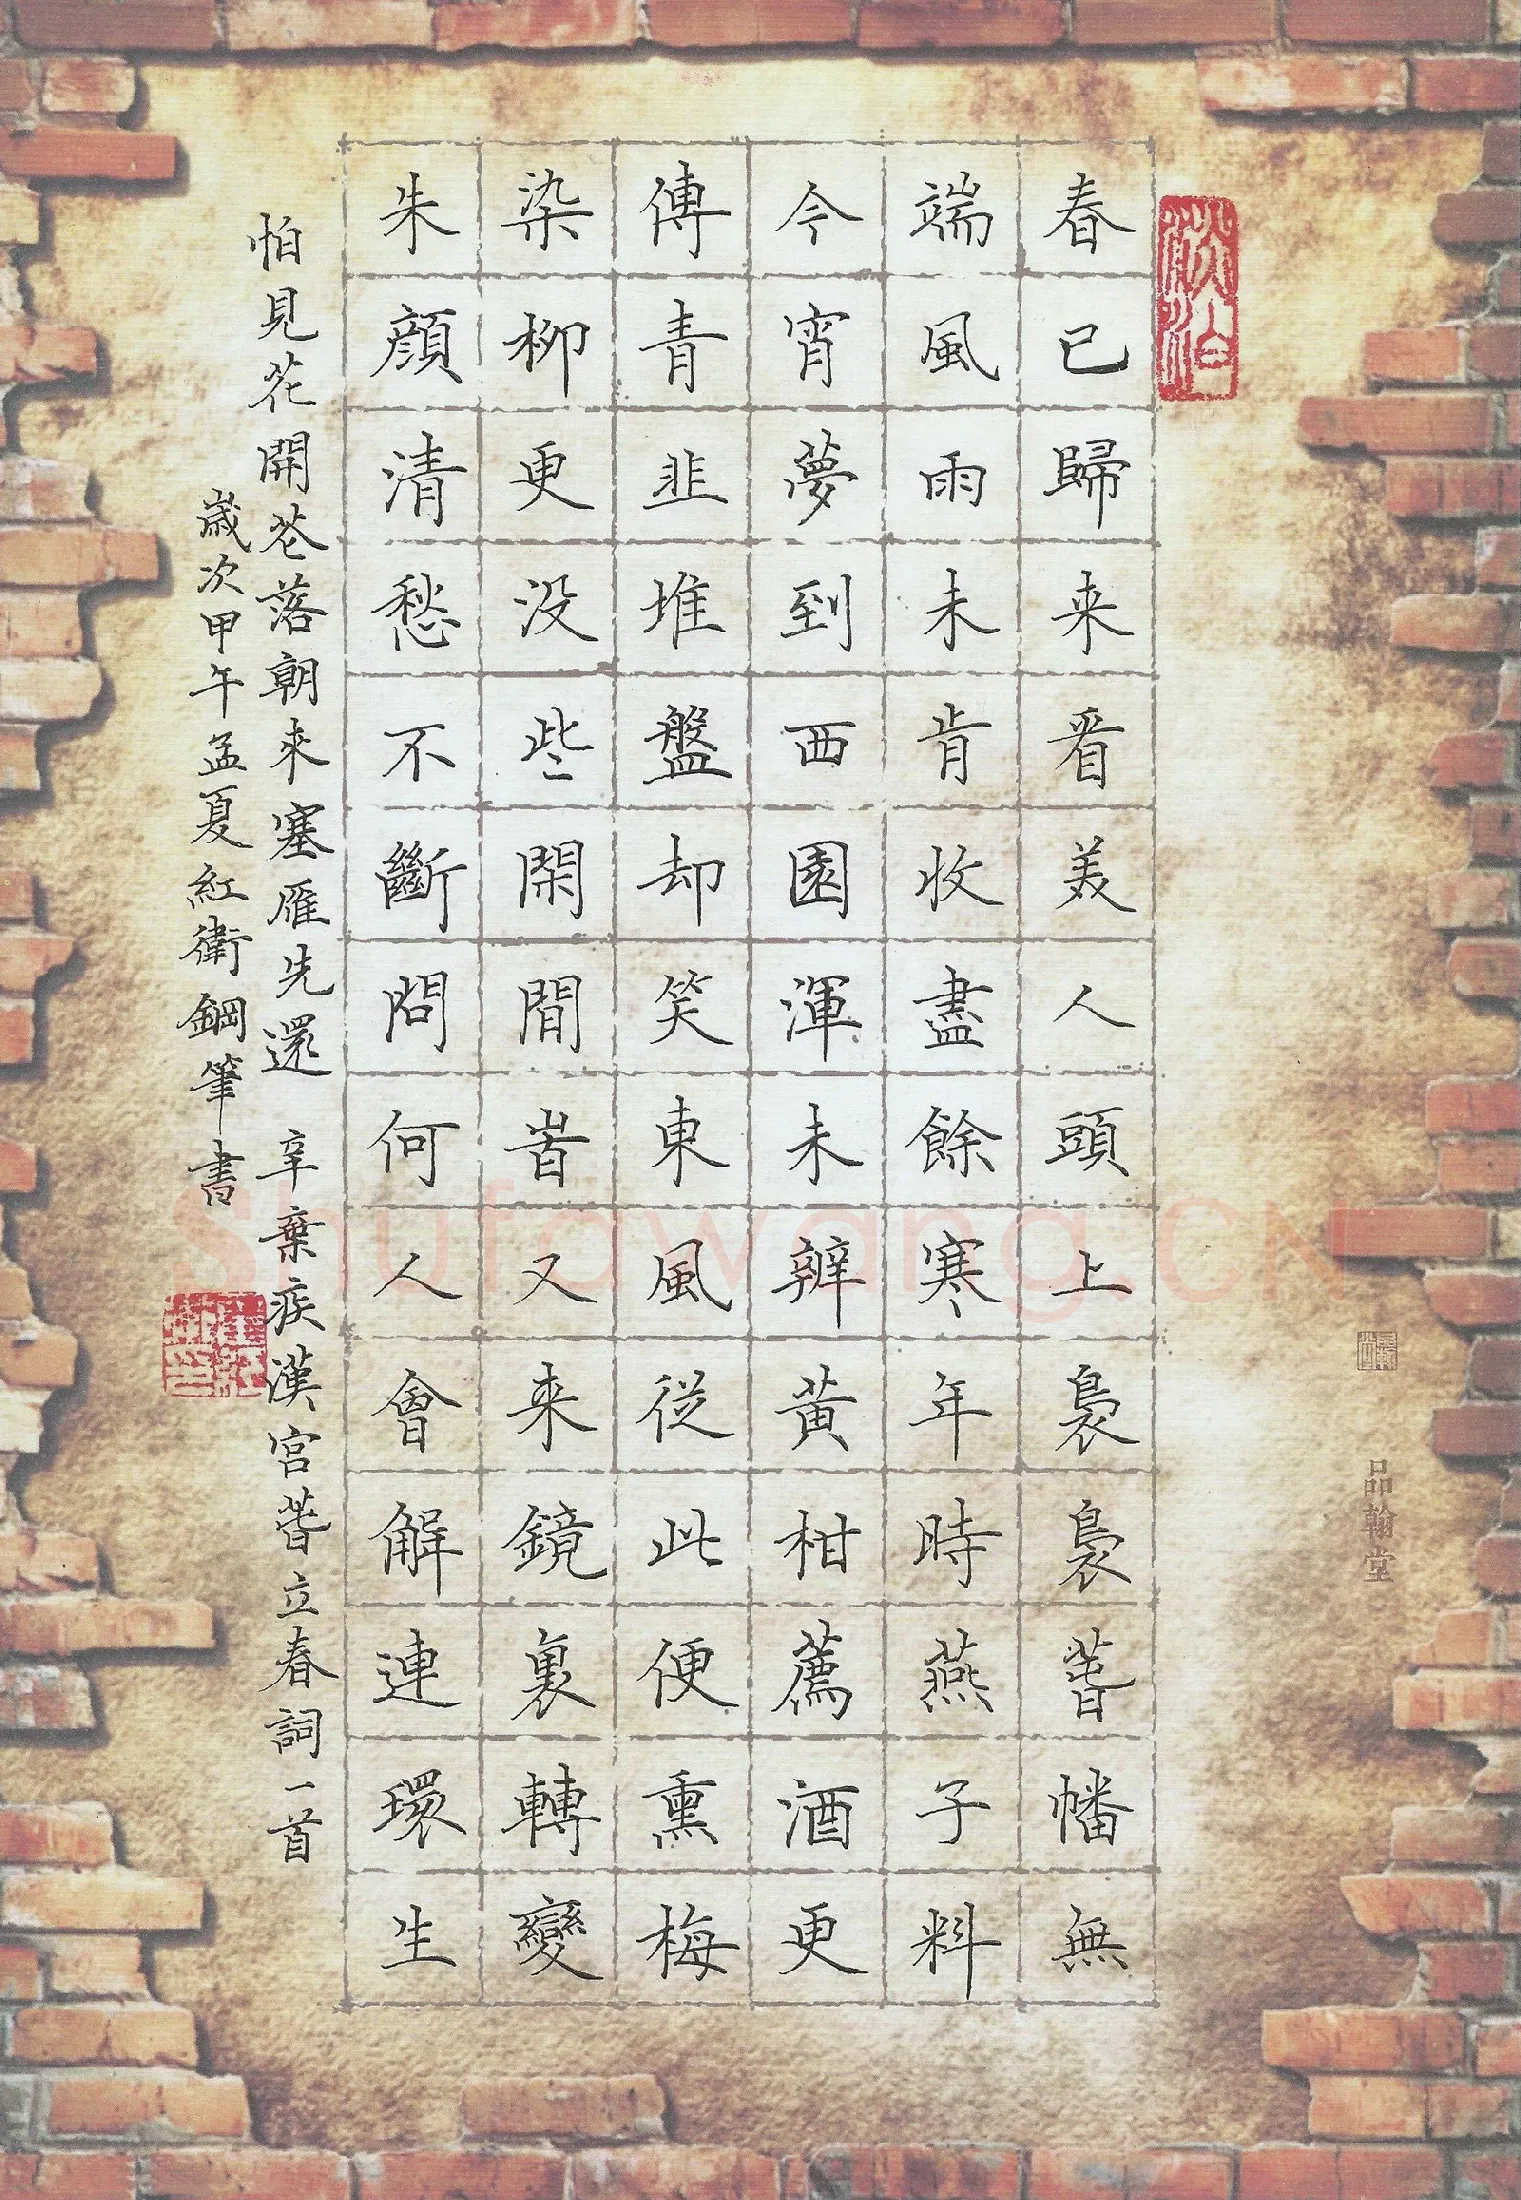 淡泊
春已歸来看美人頭上裊裊萅幡無
端風雨未肯收盡餘寒年時燕子料
今宵夢到西園渾未辨黃柑薦酒更
傳青韭堆盤却笑東風從此便熏梅
染柳更没些閑閒旹又来鏡裏轉變
朱顏清愁不斷問何人會解連環生
怕見花開花落朝来塞雁先還 辛棄疾漢宮萅立春詞一首
歲次甲午孟夏紅衛鋼筆書
品翰堂
Shufawang.CN